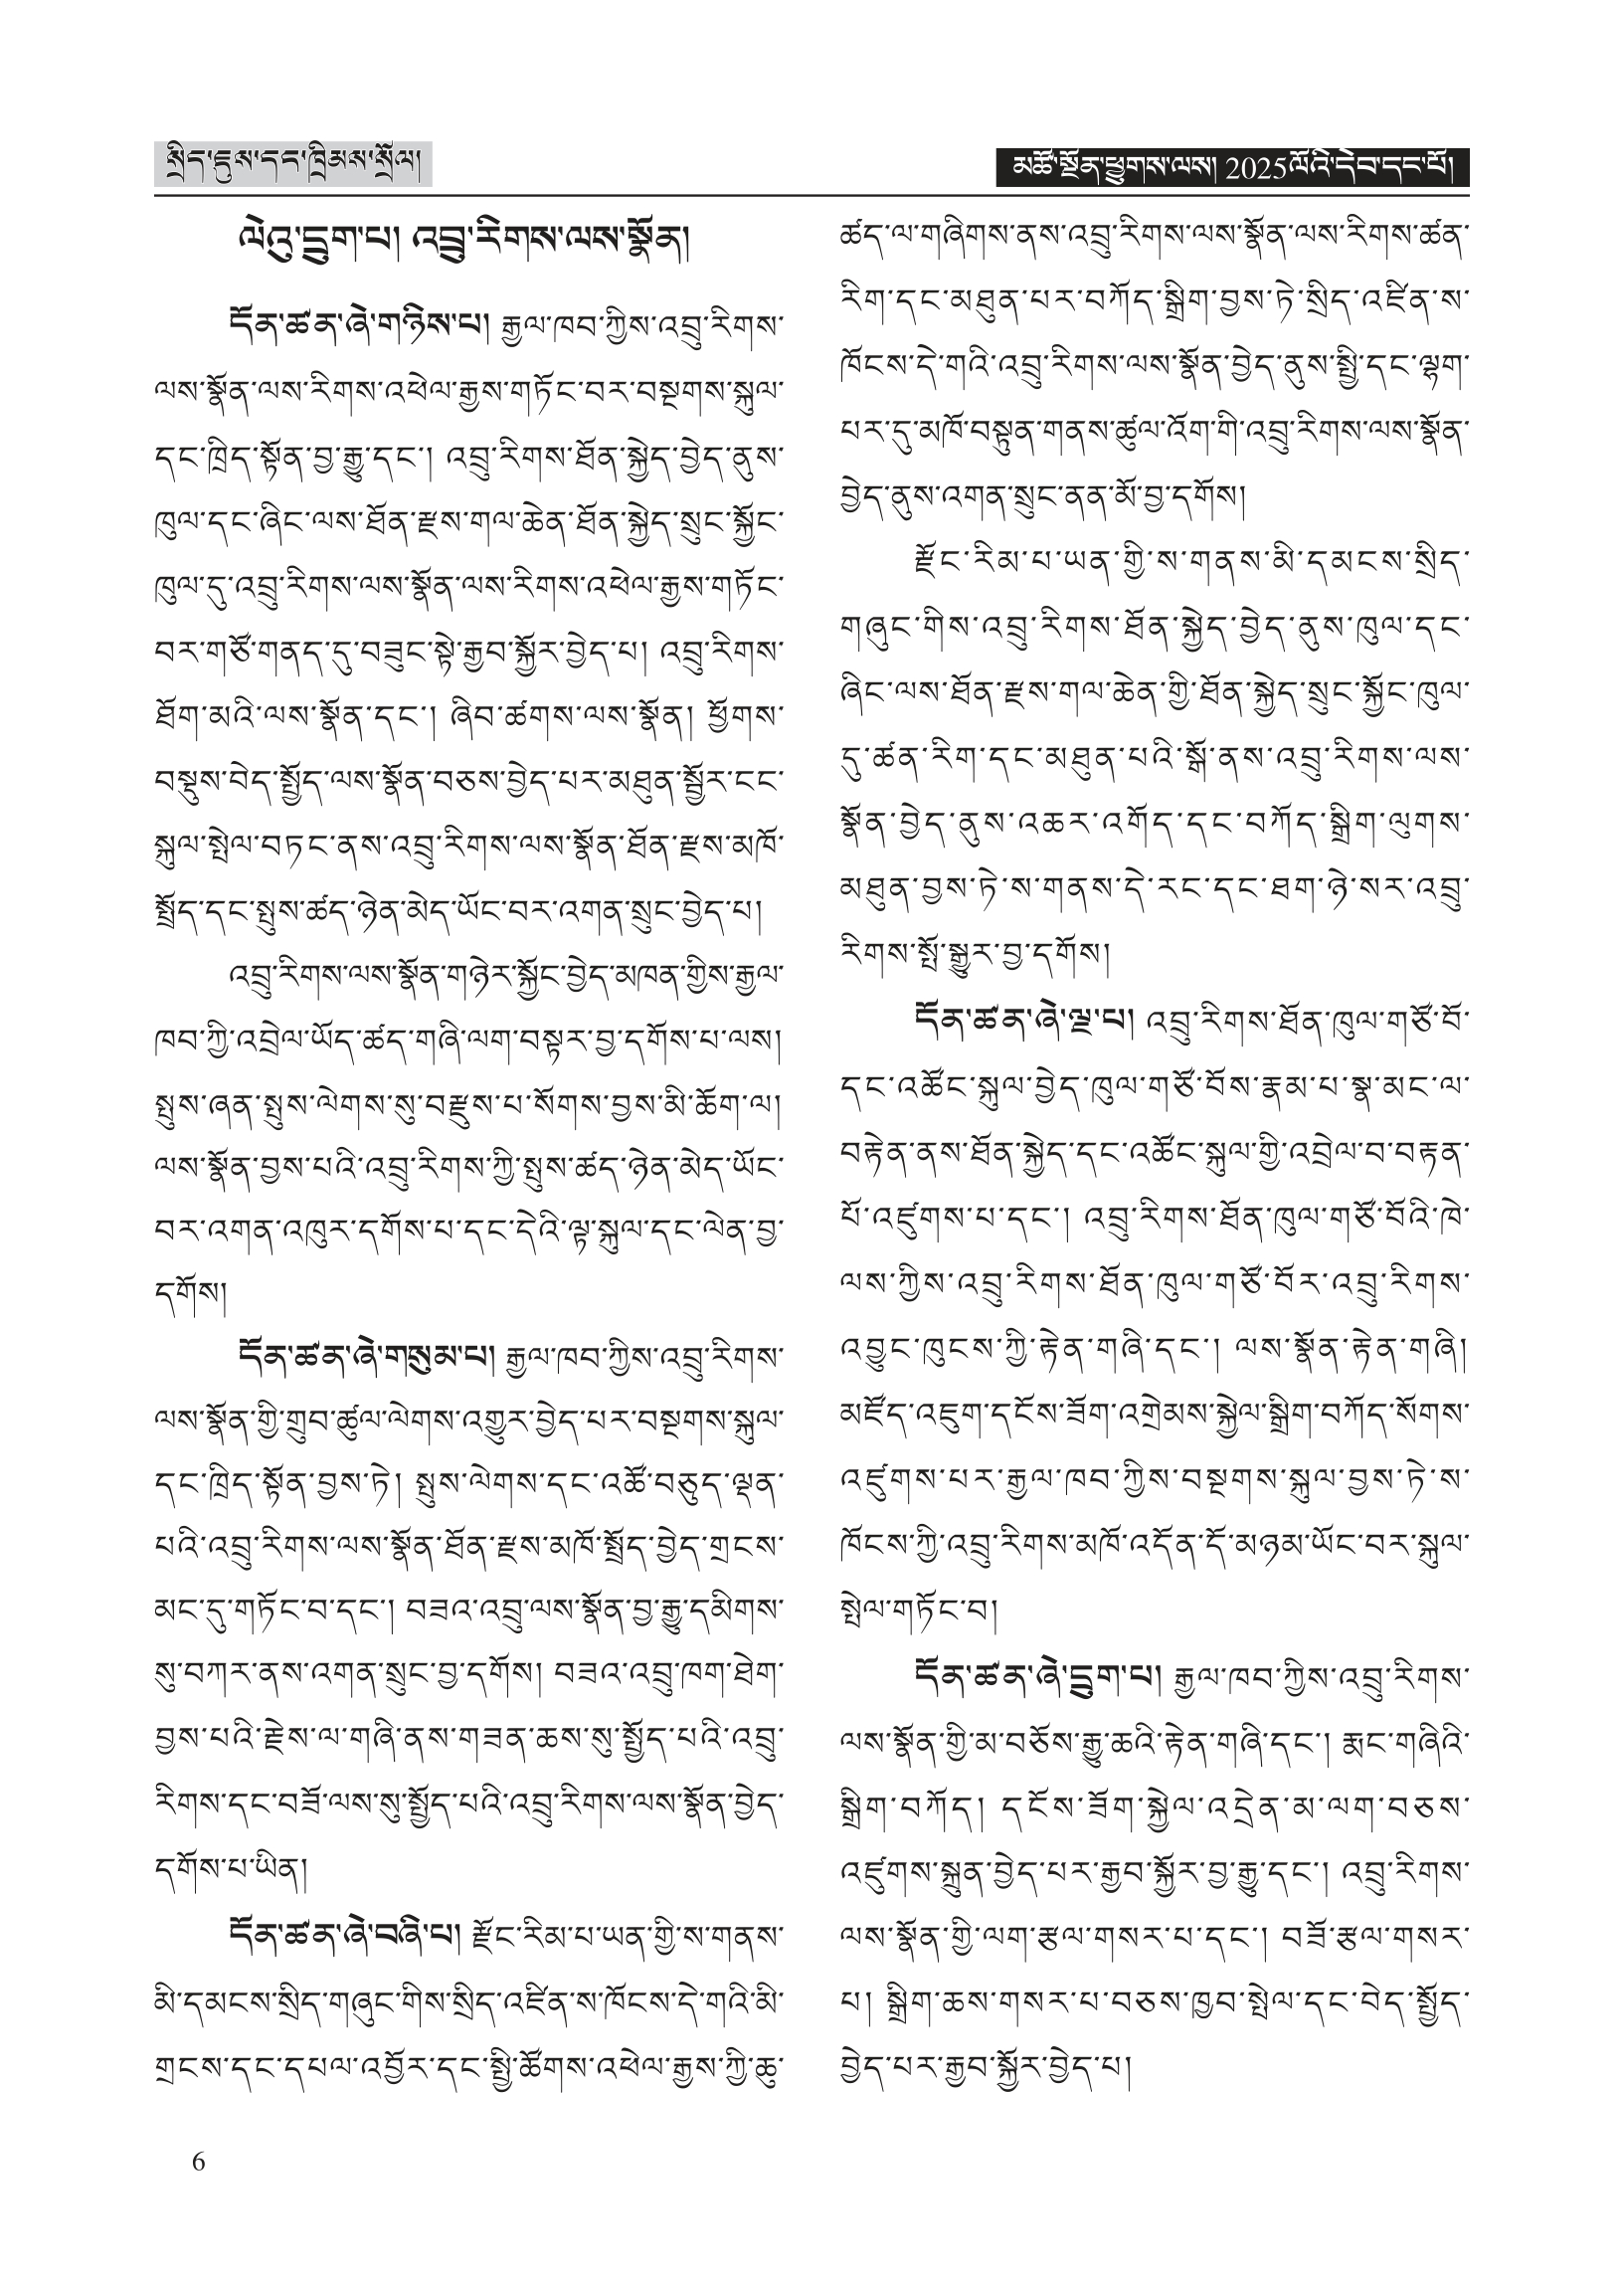 སྲིད་ཇུས་དང་ཁྲིམས་སྲོལ།
མཚོ་སྔོན་ཕྱུགས་ལས། 2025ལོའི་དེབ་དང་པོ།
ལེའུ་དྲུག་པ། འབྲུ་རིགས་ལས་སྣོན།
དོན་ཚན་ཞེ་གཉིས་པ། རྒྱལ་ཁབ་ཀྱིས་འབྲུ་རིགས་
ལས་སྣོན་ལས་རིགས་འཕེལ་རྒྱས་གཏོང་བར་བསྔགས་སྐུལ་
དང་ཁྲིད་སྟོན་བྱ་རྒྱུ་དང་། འབྲུ་རིགས་ཐོན་སྐྱེད་བྱེད་ནུས་
ཁུལ་དང་ཞིང་ལས་ཐོན་རྫས་གལ་ཆེན་ཐོན་སྐྱེད་སྲུང་སྐྱོང་
ཁུལ་དུ་འབྲུ་རིགས་ལས་སྣོན་ལས་རིགས་འཕེལ་རྒྱས་གཏོང་
བར་གཙོ་གནད་དུ་བཟུང་སྟེ་རྒྱབ་སྐྱོར་བྱེད་པ། འབྲུ་རིགས་
ཐོག་མའི་ལས་སྣོན་དང་། ཞིབ་ཚགས་ལས་སྣོན། ཕྱོགས་
བསྡུས་བེད་སྤྱོད་ལས་སྣོན་བཅས་བྱེད་པར་མཐུན་སྦྱོར་ངང་
སྐུལ་སྤེལ་བཏང་ནས་འབྲུ་རིགས་ལས་སྣོན་ཐོན་རྫས་མཁོ་
སྤྲོད་དང་སྤུས་ཚད་ཉེན་མེད་ཡོང་བར་འགན་སྲུང་བྱེད་པ།
འབྲུ་རིགས་ལས་སྣོན་གཉེར་སྐྱོང་བྱེད་མཁན་གྱིས་རྒྱལ་
ཁབ་ཀྱི་འབྲེལ་ཡོད་ཚད་གཞི་ལག་བསྟར་བྱ་དགོས་པ་ལས།
སྤུས་ཞན་སྤུས་ལེགས་སུ་བརྫུས་པ་སོགས་བྱས་མི་ཆོག་ལ།
ལས་སྣོན་བྱས་པའི་འབྲུ་རིགས་ཀྱི་སྤུས་ཚད་ཉེན་མེད་ཡོང་
བར་འགན་འཁུར་དགོས་པ་དང་དེའི་ལྟ་སྐུལ་དང་ལེན་བྱ་
དགོས།
དོན་ཚན་ཞེ་གསུམ་པ། རྒྱལ་ཁབ་ཀྱིས་འབྲུ་རིགས་
ལས་སྣོན་གྱི་གྲུབ་ཚུལ་ལེགས་འགྱུར་བྱེད་པར་བསྔགས་སྐུལ་
དང་ཁྲིད་སྟོན་བྱས་ཏེ། སྤུས་ལེགས་དང་འཚོ་བཅུད་ལྡན་
པའི་འབྲུ་རིགས་ལས་སྣོན་ཐོན་རྫས་མཁོ་སྤྲོད་བྱེད་གྲངས་
མང་དུ་གཏོང་བ་དང་། བཟའ་འབྲུ་ལས་སྣོན་བྱ་རྒྱུ་དམིགས་
སུ་བཀར་ནས་འགན་སྲུང་བྱ་དགོས། བཟའ་འབྲུ་ཁག་ཐེག་
བྱས་པའི་རྗེས་ལ་གཞི་ནས་གཟན་ཆས་སུ་སྤྱོད་པའི་འབྲུ་
རིགས་དང་བཟོ་ལས་སུ་སྤྱོད་པའི་འབྲུ་རིགས་ལས་སྣོན་བྱེད་
དགོས་པ་ཡིན།
དོན་ཚན་ཞེ་བཞི་པ། རྫོང་རིམ་པ་ཡན་གྱི་ས་གནས་
མི་དམངས་སྲིད་གཞུང་གིས་སྲིད་འཛིན་ས་ཁོངས་དེ་གའི་མི་
གྲངས་དང་དཔལ་འབྱོར་དང་སྤྱི་ཚོགས་འཕེལ་རྒྱས་ཀྱི་ཆུ་
ཚད་ལ་གཞིགས་ནས་འབྲུ་རིགས་ལས་སྣོན་ལས་རིགས་ཚན་
རིག་དང་མཐུན་པར་བཀོད་སྒྲིག་བྱས་ཏེ་སྲིད་འཛིན་ས་
ཁོངས་དེ་གའི་འབྲུ་རིགས་ལས་སྣོན་བྱེད་ནུས་སྤྱི་དང་ལྷག་
པར་དུ་མཁོ་བསྟུན་གནས་ཚུལ་འོག་གི་འབྲུ་རིགས་ལས་སྣོན་
བྱེད་ནུས་འགན་སྲུང་ནན་མོ་བྱ་དགོས།
རྫོང་རིམ་པ་ཡན་གྱི་ས་གནས་མི་དམངས་སྲིད་
གཞུང་གིས་འབྲུ་རིགས་ཐོན་སྐྱེད་བྱེད་ནུས་ཁུལ་དང་
ཞིང་ལས་ཐོན་རྫས་གལ་ཆེན་གྱི་ཐོན་སྐྱེད་སྲུང་སྐྱོང་ཁུལ་
དུ་ཚན་རིག་དང་མཐུན་པའི་སྒོ་ནས་འབྲུ་རིགས་ལས་
སྣོན་བྱེད་ནུས་འཆར་འགོད་དང་བཀོད་སྒྲིག་ལུགས་
མཐུན་བྱས་ཏེ་ས་གནས་དེ་རང་དང་ཐག་ཉེ་སར་འབྲུ་
རིགས་སྤོ་སྒྱུར་བྱ་དགོས།
དོན་ཚན་ཞེ་ལྔ་པ། འབྲུ་རིགས་ཐོན་ཁུལ་གཙོ་བོ་
དང་འཚོང་སྐུལ་བྱེད་ཁུལ་གཙོ་བོས་རྣམ་པ་སྣ་མང་ལ་
བརྟེན་ནས་ཐོན་སྐྱེད་དང་འཚོང་སྐུལ་གྱི་འབྲེལ་བ་བརྟན་
པོ་འཛུགས་པ་དང་། འབྲུ་རིགས་ཐོན་ཁུལ་གཙོ་བོའི་ཁེ་
ལས་ཀྱིས་འབྲུ་རིགས་ཐོན་ཁུལ་གཙོ་བོར་འབྲུ་རིགས་
འབྱུང་ཁུངས་ཀྱི་རྟེན་གཞི་དང་། ལས་སྣོན་རྟེན་གཞི།
མཛོད་འཇུག་དངོས་ཟོག་འགྲེམས་སྐྱེལ་སྒྲིག་བཀོད་སོགས་
འཛུགས་པར་རྒྱལ་ཁབ་ཀྱིས་བསྔགས་སྐུལ་བྱས་ཏེ་ས་
ཁོངས་ཀྱི་འབྲུ་རིགས་མཁོ་འདོན་དོ་མཉམ་ཡོང་བར་སྐུལ་
སྤེལ་གཏོང་བ།
དོན་ཚན་ཞེ་དྲུག་པ། རྒྱལ་ཁབ་ཀྱིས་འབྲུ་རིགས་
ལས་སྣོན་གྱི་མ་བཅོས་རྒྱུ་ཆའི་རྟེན་གཞི་དང་། རྨང་གཞིའི་
སྒྲིག་བཀོད། དངོས་ཟོག་སྐྱེལ་འདྲེན་མ་ལག་བཅས་
འཛུགས་སྐྲུན་བྱེད་པར་རྒྱབ་སྐྱོར་བྱ་རྒྱུ་དང་། འབྲུ་རིགས་
ལས་སྣོན་གྱི་ལག་རྩལ་གསར་པ་དང་། བཟོ་རྩལ་གསར་
པ། སྒྲིག་ཆས་གསར་པ་བཅས་ཁྱབ་སྤེལ་དང་བེད་སྤྱོད་
བྱེད་པར་རྒྱབ་སྐྱོར་བྱེད་པ།
6